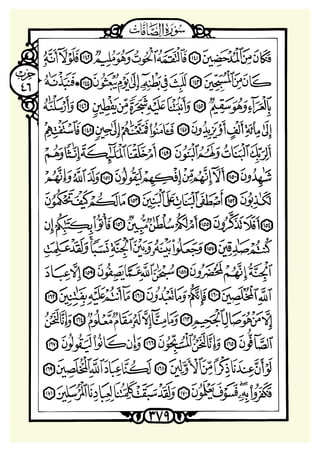 سُورَةُ الصَّافَّات
حزب ٤٦
فَكَانَ مِنَ ٱلْمُدْحَضِينَ ١٤١ فَٱلْتَقَمَهُ ٱلْحُوتُ وَهُوَ مُلِيمٌ ١٤٢ فَلَوْلَآ أَنَّهُۥ
كَانَ مِنَ ٱلْمُسَبِّحِينَ ١٤٣ لَلَبِثَ فِى بَطْنِهِۦٓ إِلَىٰ يَوْمِ يُبْعَثُونَ ١٤٤ فَنَبَذْنَٰهُ
بِٱلْعَرَآءِ وَهُوَ سَقِيمٌ ١٤٥ وَأَنۢبَتْنَا عَلَيْهِ شَجَرَةً مِّن يَقْطِينٍ ١٤٦ وَأَرْسَلْنَٰهُ
إِلَىٰ مِا۟ئَةِ أَلْفٍ أَوْ يَزِيدُونَ ١٤٧ فَـَٔامَنُوا۟ فَمَتَّعْنَٰهُمْ إِلَىٰ حِينٍ ١٤٨ فَٱسْتَفْتِهِمْ
أَلِرَبِّكَ ٱلْبَنَاتُ وَلَهُمُ ٱلْبَنُونَ ١٤٩ أَمْ خَلَقْنَا ٱلْمَلَٰٓئِكَةَ إِنَٰثًا وَهُمْ
شَٰهِدُونَ ١٥٠ أَلَآ إِنَّهُم مِّنْ إِفْكِهِمْ لَيَقُولُونَ ١٥١ وَلَدَ ٱللَّهُ وَإِنَّهُمْ
لَكَٰذِبُونَ ١٥٢ أَصْطَفَى ٱلْبَنَاتِ عَلَى ٱلْبَنِينَ ١٥٣ مَا لَكُمْ كَيْفَ تَحْكُمُونَ
١٥٤ أَفَلَا تَذَكَّرُونَ ١٥٥ أَمْ لَكُمْ سُلْطَٰنٌ مُّبِينٌ ١٥٦ فَأْتُوا۟ بِكِتَٰبِكُمْ إِن
كُنتُمْ صَٰدِقِينَ ١٥٧ وَجَعَلُوا۟ بَيْنَهُۥ وَبَيْنَ ٱلْجِنَّةِ نَسَبًا وَلَقَدْ عَلِمَتِ
ٱلْجِنَّةُ إِنَّهُمْ لَمُحْضَرُونَ ١٥٨ سُبْحَٰنَ ٱللَّهِ عَمَّا يَصِفُونَ ١٥٩ إِلَّا عِبَادَ
ٱللَّهِ ٱلْمُخْلَصِينَ ١٦٠ فَإِنَّكُمْ وَمَا تَعْبُدُونَ ١٦١ مَآ أَنتُمْ عَلَيْهِ بِفَٰتِنِينَ ١٦٢
إِلَّا مَنْ هُوَ صَالِ ٱلْجَحِيمِ ١٦٣ وَمَا مِنَّآ إِلَّا لَهُۥ مَقَامٌ مَّعْلُومٌ ١٦٤ وَإِنَّا لَنَحْنُ
ٱلصَّآفُّونَ ١٦٥ وَإِنَّا لَنَحْنُ ٱلْمُسَبِّحُونَ ١٦٦ وَإِن كَانُوا۟ لَيَقُولُونَ ١٦٧
لَوْ أَنَّ عِندَنَا ذِكْرًا مِّنَ ٱلْأَوَّلِينَ ١٦٨ لَكُنَّا عِبَادَ ٱللَّهِ ٱلْمُخْلَصِينَ ١٦٩
فَكَفَرُوا۟ بِهِۦ فَسَوْفَ يَعْلَمُونَ ١٧٠ وَلَقَدْ سَبَقَتْ كَلِمَتُنَا لِعِبَادِنَا ٱلْمُرْسَلِينَ ١٧١
٣٧٩